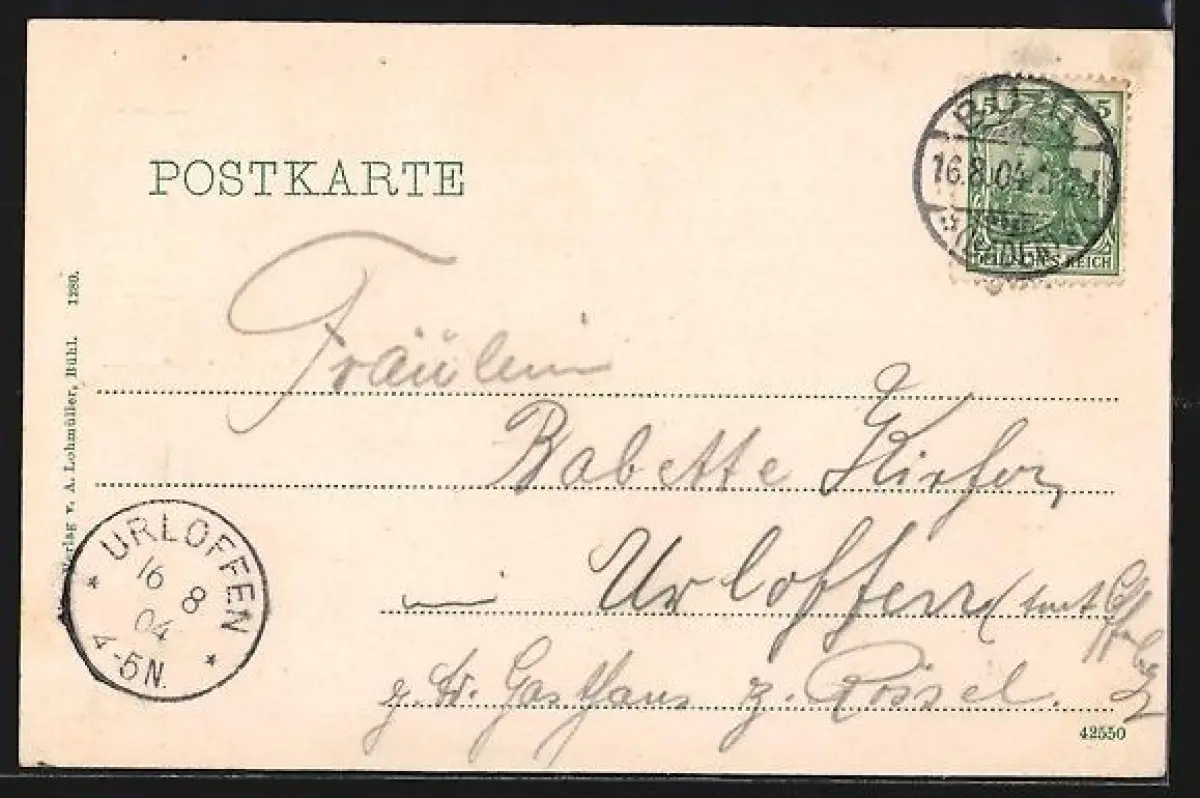 POSTKARTE
5 5
BÜHL
16.8.04
(BADEN)
DEUTSCHES REICH
Fräulein
Babette Kiefer
in Urloffen (Amt Offenbg
z. Gasthaus z. Rössel.
Verlag v. A. Lohmüller, Bühl. 1280.
* URLOFFEN *
16 8
04
4-5N.
42550